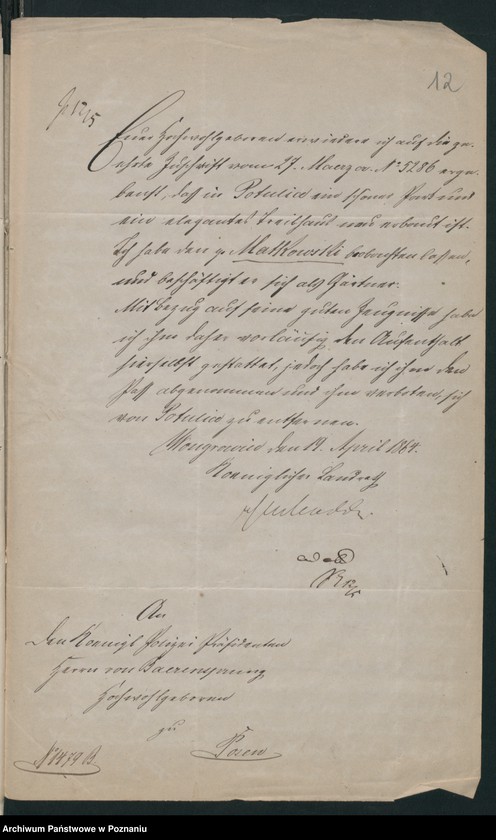 12
Euer Hochwohlgeboren erwiedere ich auf die ge-
ehrte Zuschrift vom 27. Maerz a. No 5286 erge-
benst, daß in Potulice ein schöner Park und
ein elegantes Treibhaus neu erbaut ist.
Ich habe den p. Matkowski beobachten lassen,
und beschäftigt er sich als Gärtner.
Mit bezug auf seine guten Zeugnisse habe
ich ihm daher vorläufig den Aufenthalt
hierselbst gestattet, jedoch habe ich ihm den
Paß abgenommen und ihm verboten, sich
von Potulice zu entfernen.
Wongrowiec den April 1864.
Koeniglicher Landrath
An
Den Koenigl. Polizei Präsidenten
Herrn von Baerensprung
Hochwohlgeboren
zu
Posen
No 1479 B
Archiwum Państwowe w Poznaniu